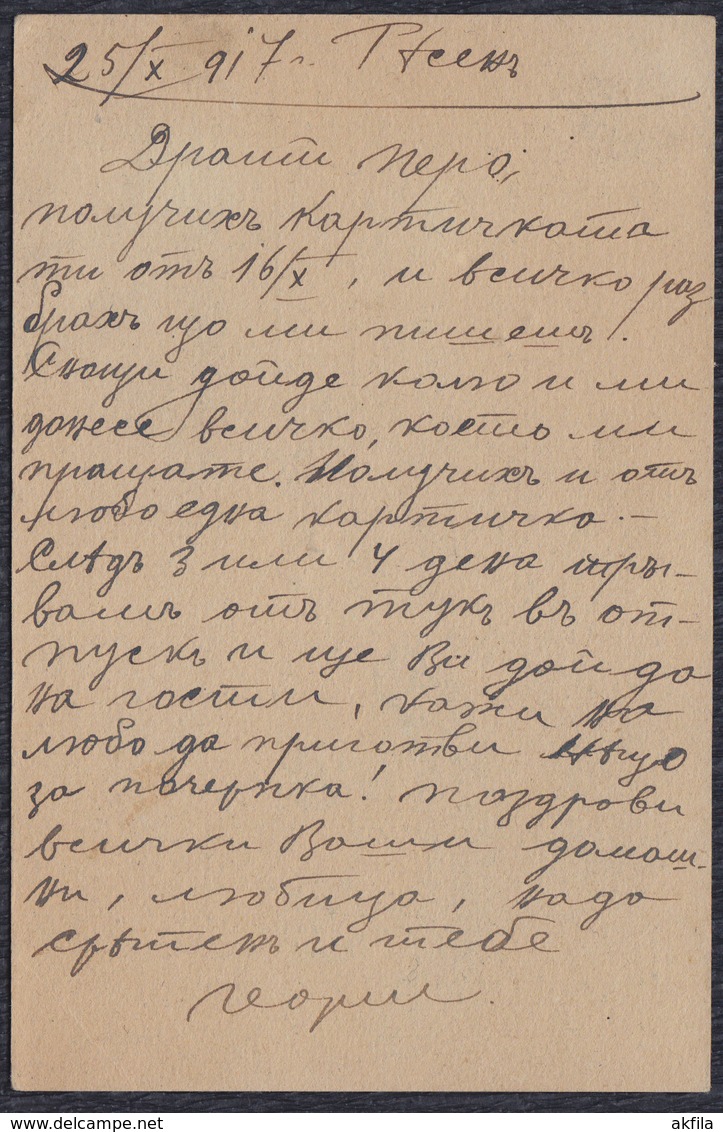 25/X 917 г.
Драгий Перо,
получихъ картичката
ти отъ 16/X, и всичко раз
брахъ що ми пишешъ.
Снощи дойде Колю и ми
донесе всичко, което ми
пращате. Получихъ и отъ
Любо една картичка. –
Слѣдъ 3 или 4 дена тръ-
вамъ отъ тукъ въ от-
пускъ и ще Ви дойда
на гости, кажи на
Любо да приготви нѣщо
за почерпка! Поздрави
всички Ваши домаш-
ни, Любица, Надо
Срѣтенъ и тебе
Георги.
akfila
akfila